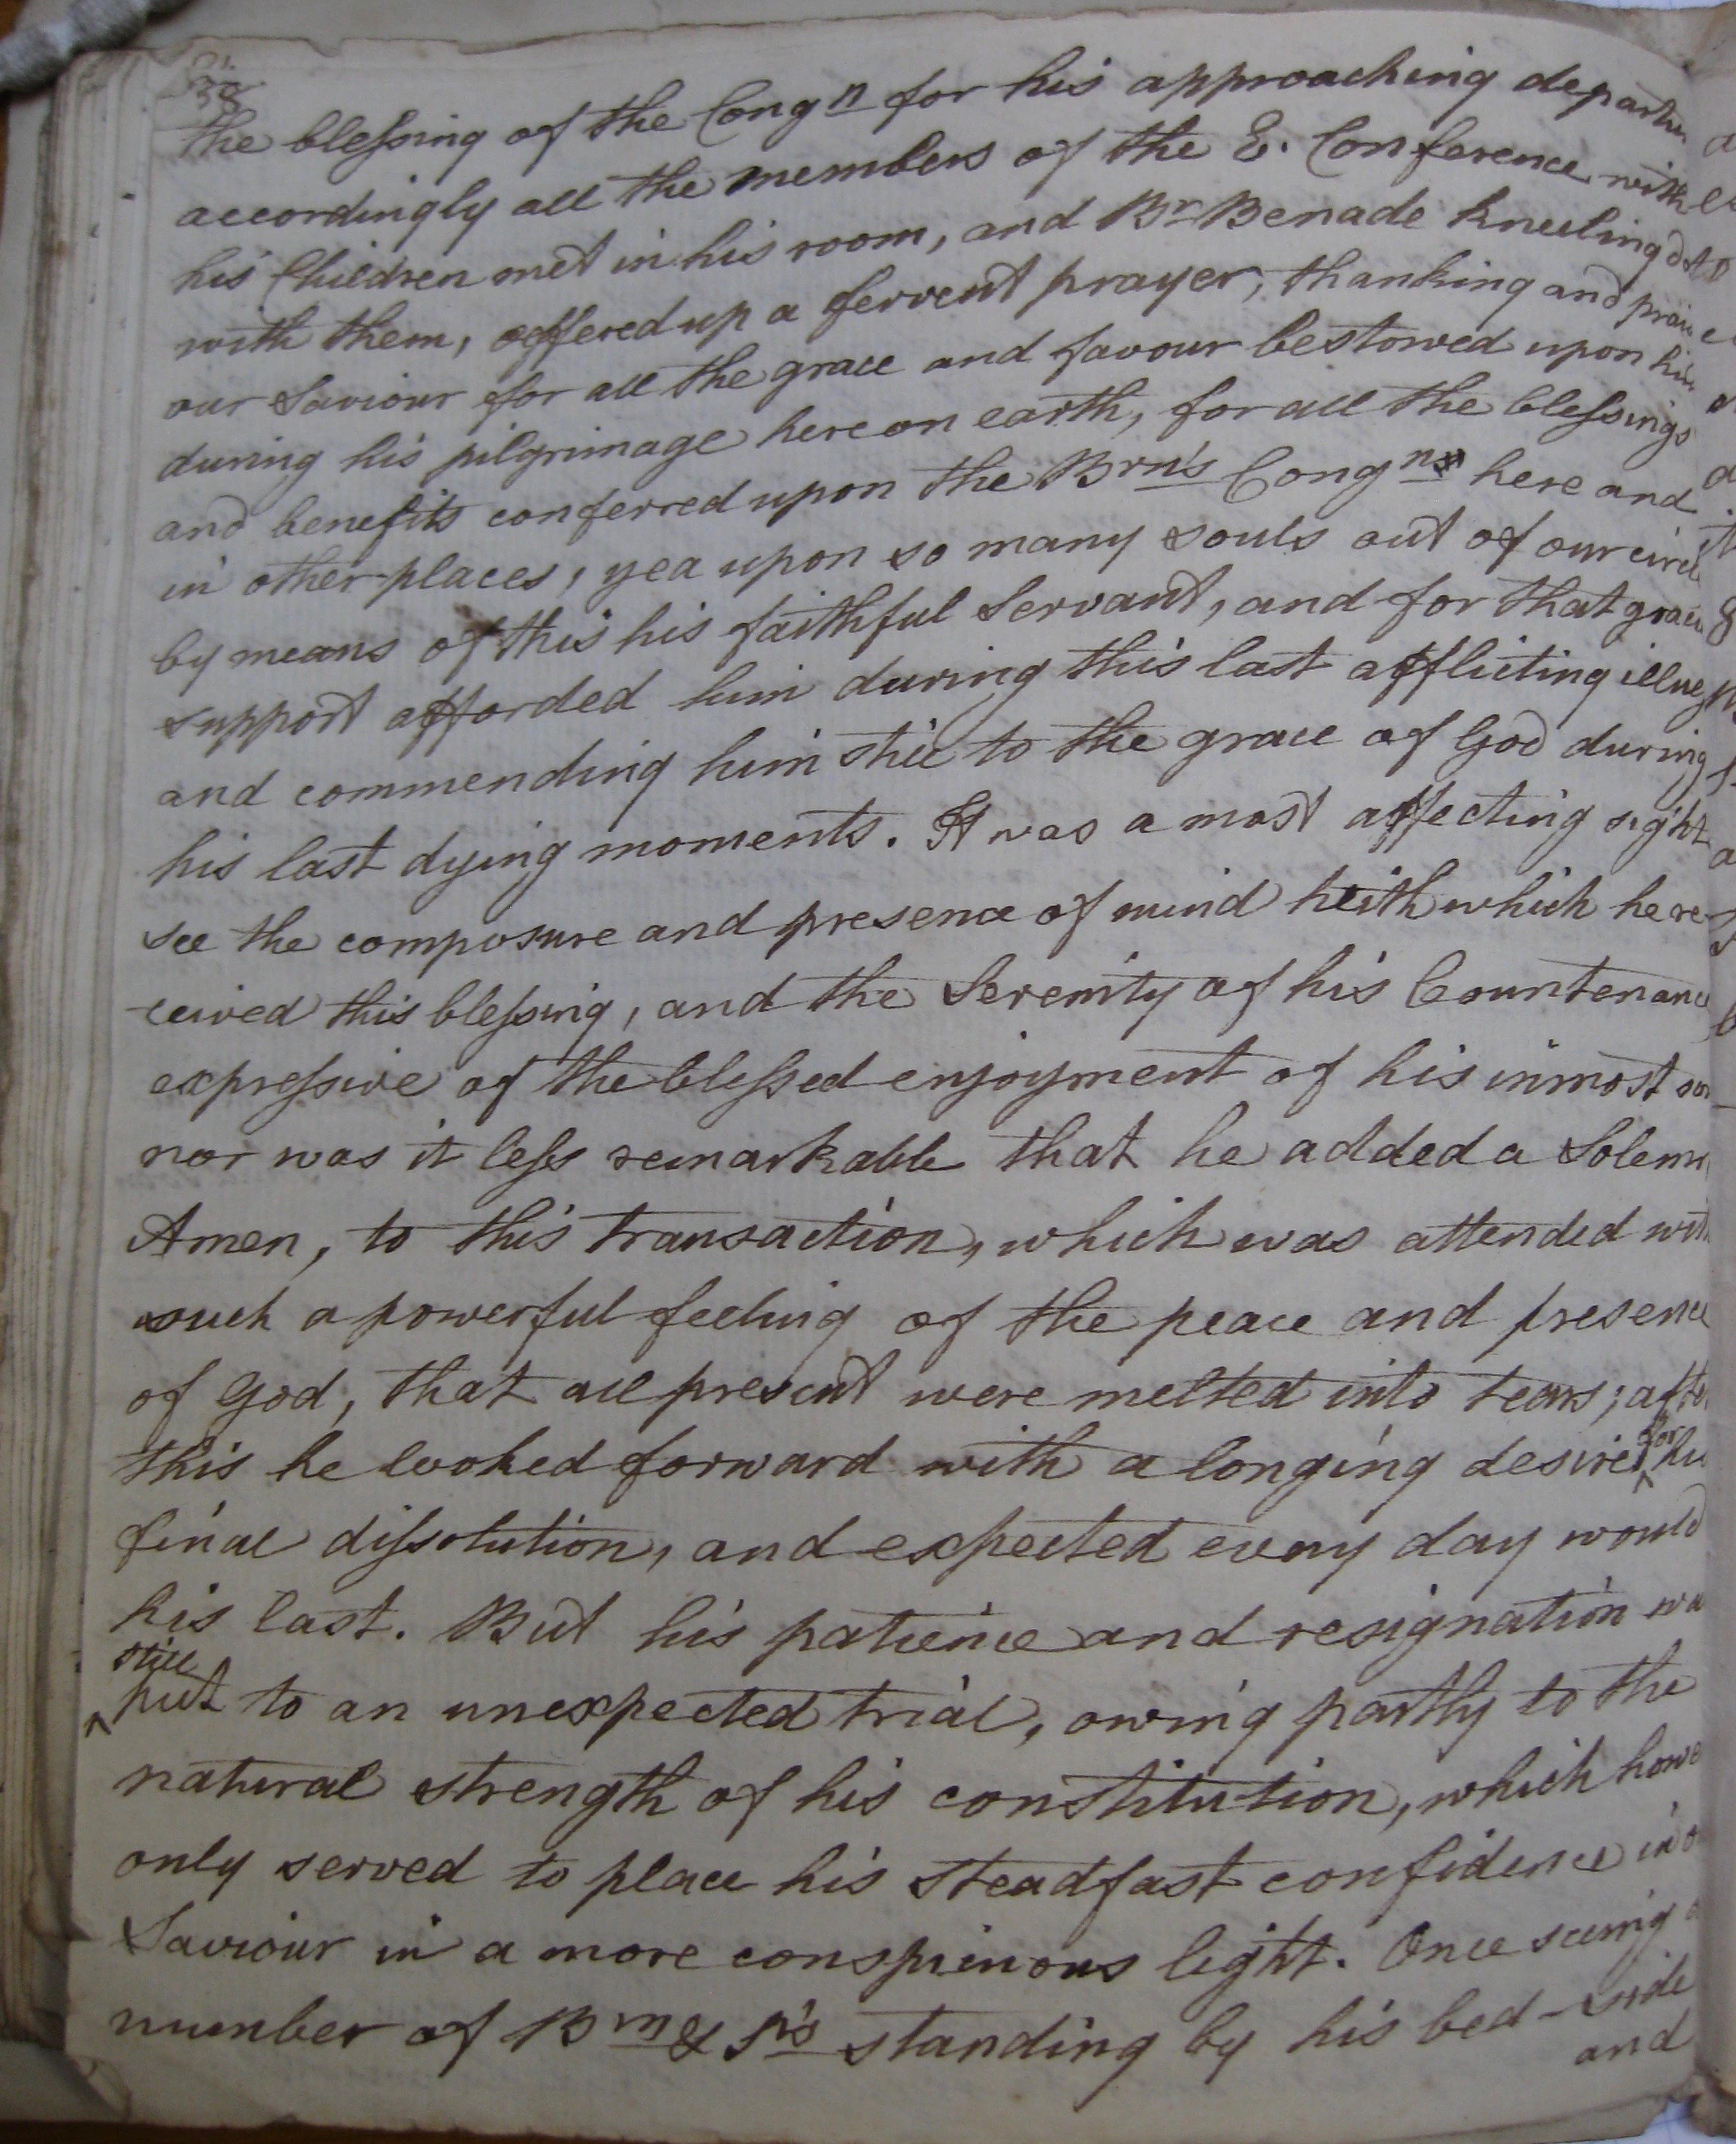 38
the blessing of the Congn for his approaching departu
accordingly all the members of the E. Conference with
his Children met in his room, and Br Benade kneeling
with them, offered up a fervent prayer, thanking and prai
our Saviour for all the grace and favour bestowed upon him
during his pilgrimage here on earth, for all the blessings
and benefits conferred upon the Brn's Congns here and
in other places, yea upon so many souls out of our circl
by means of this his faithful Servant, and for that grac
support afforded him during this last afflicting illne
and commending him still to the grace of God during
his last dying moments. It was a most affecting sight
see the composure and presence of mind with which he re
ceived this blessing, and the Serenity of his Countenanc
expressive of the blessed enjoyment of his inmost so
nor was it less remarkable that he added a Solemn
Amen, to this transaction, which was attended with
such a powerful feeling of the peace and presence
of God, that all present were melted into tears; after
this he looked forward with a longing desire for his
final dissolution, and expected every day would
his last. But his patience and resignation wa
still put to an unexpected trial, owing partly to the
natural strength of his constitution, which howe
only served to place his steadfast confidence in o
Saviour in a more conspicuous light. Once seeing a
number of Brn & Srs standing by his bed-side
and